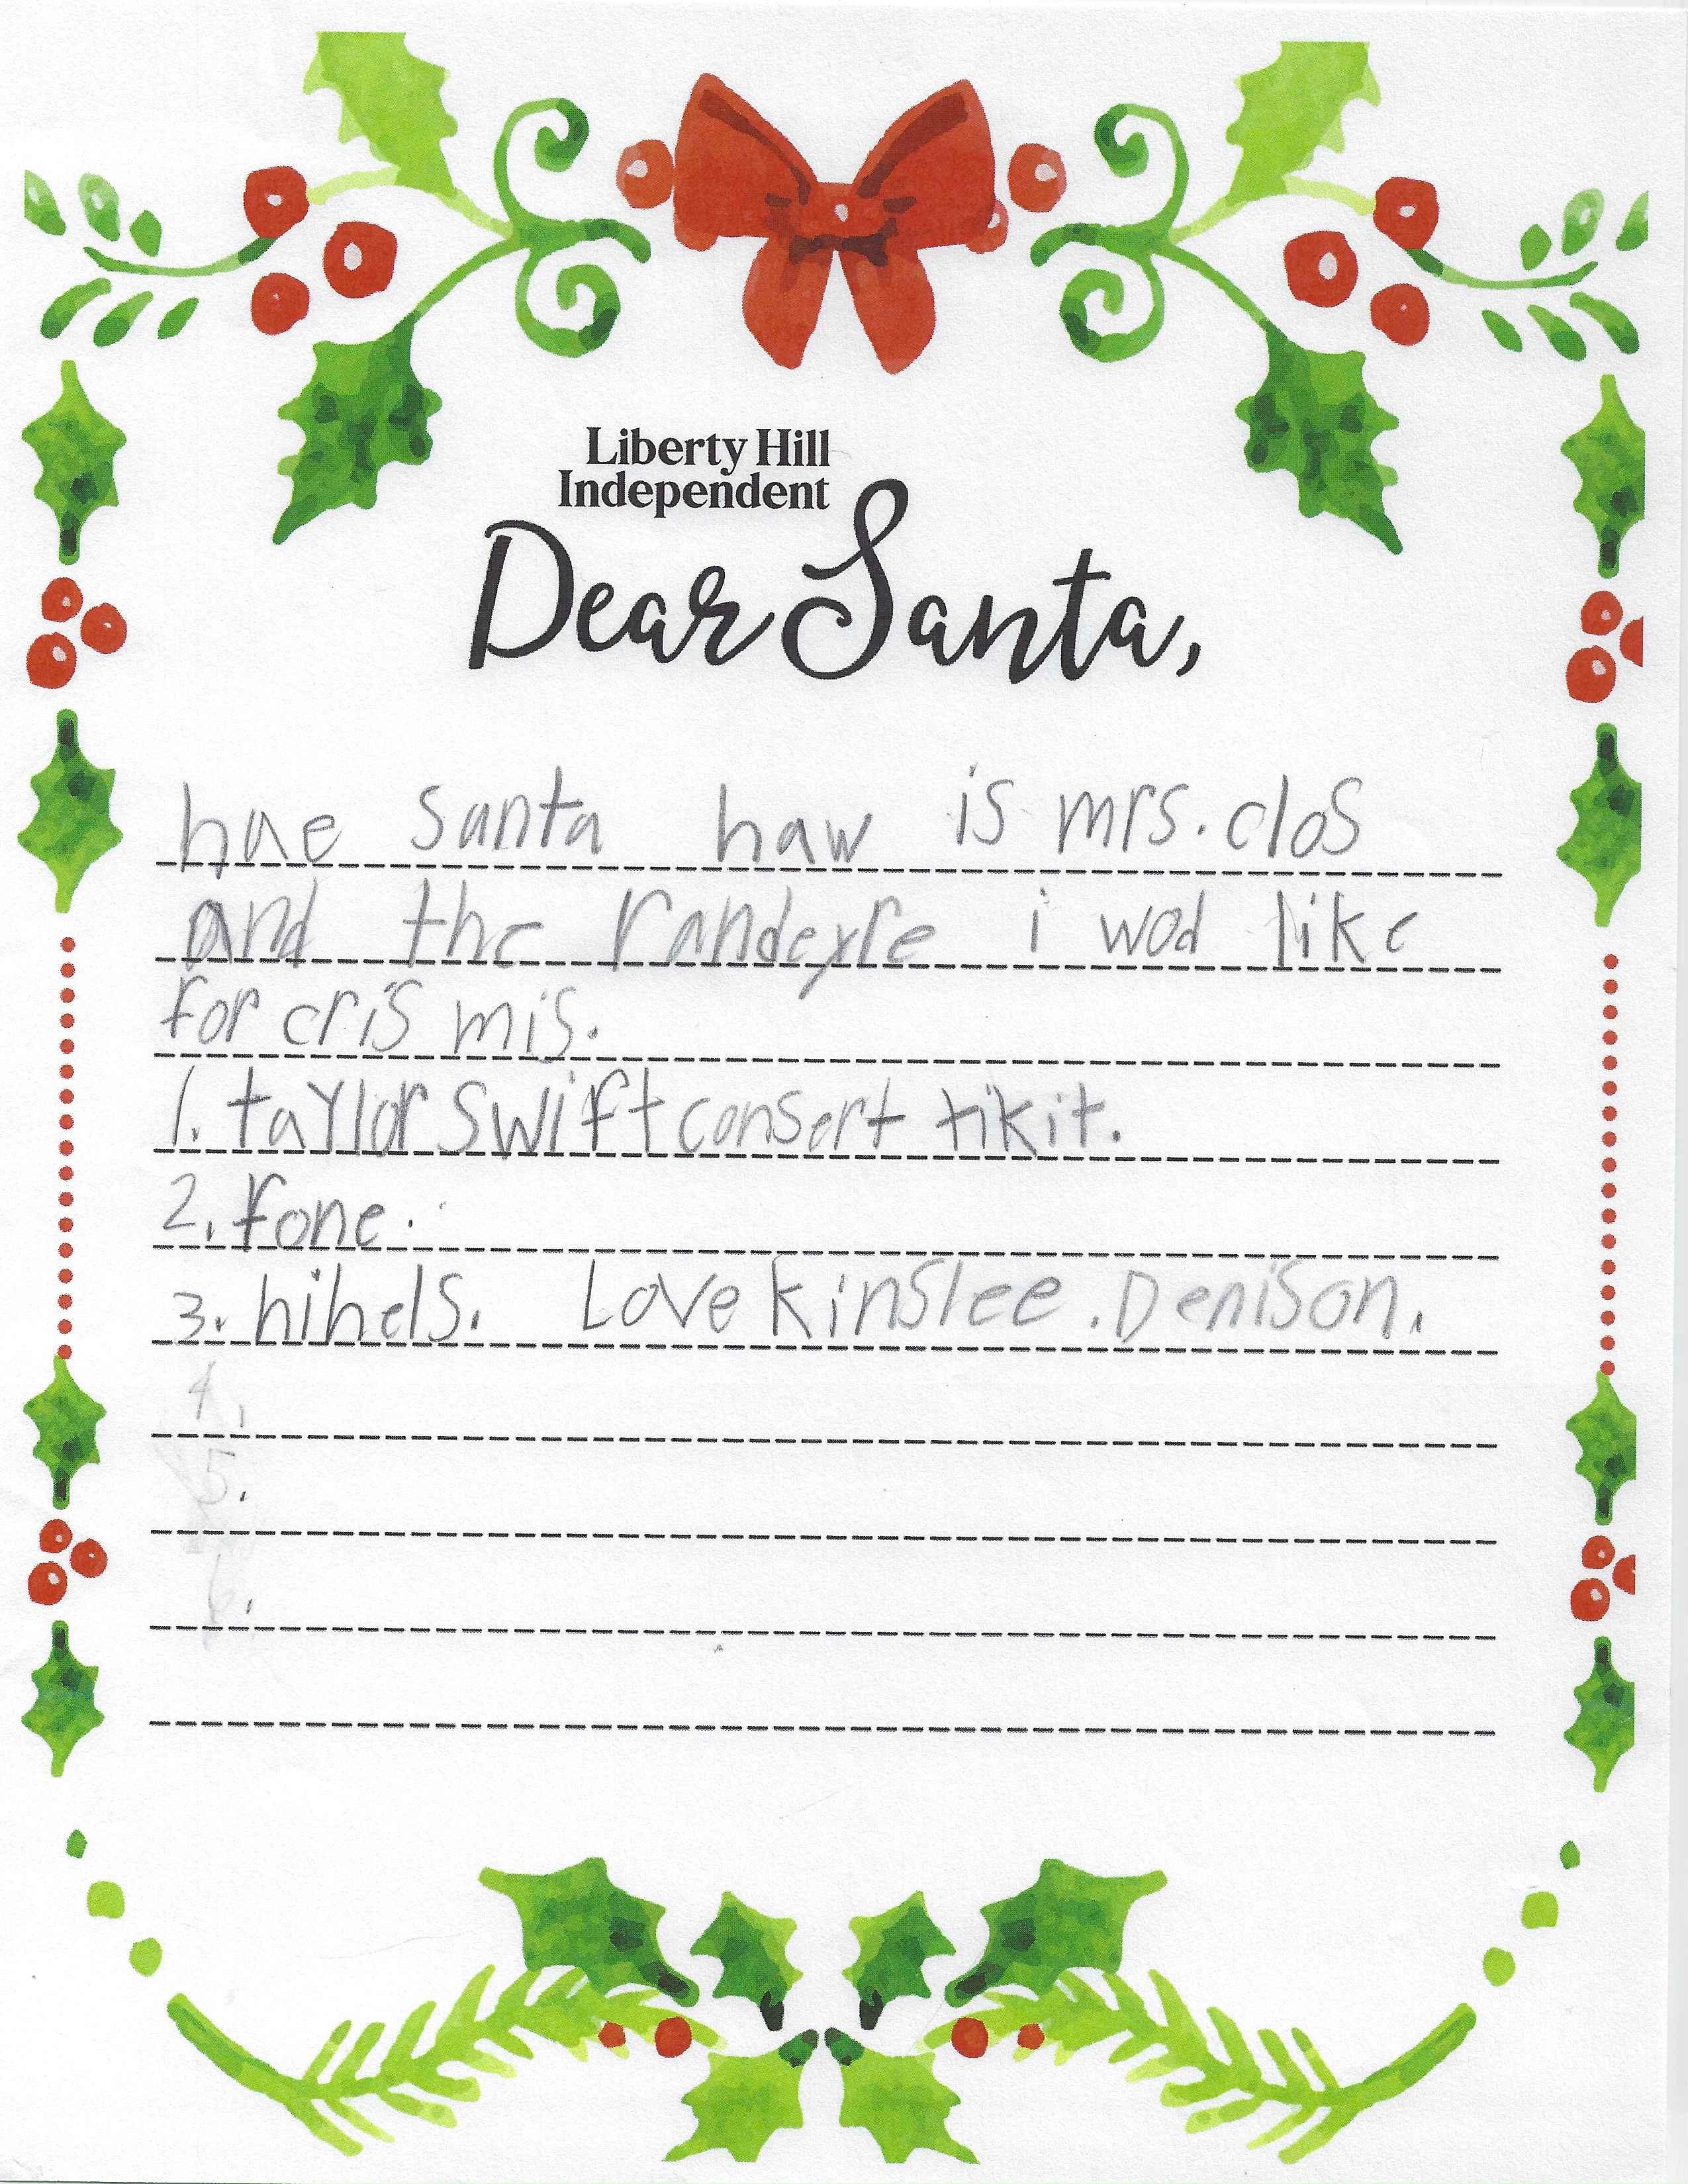 Liberty Hill
Independent
Dear Santa,
hae santa haw is mrs. clos
and the randeyre i wod like
for cris mis.
1. taylor swift consert tikit.
2. fone.
3. hihels. Love kinslee. Denison.
4.
5.
6.